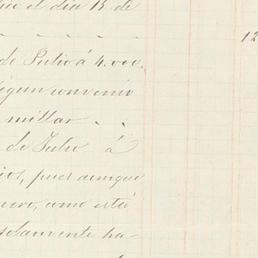 el dia 15 de
12
de Julio á 4.000
segun convenio
millar
de Julio á
pues aunque
como está
solamente ha-